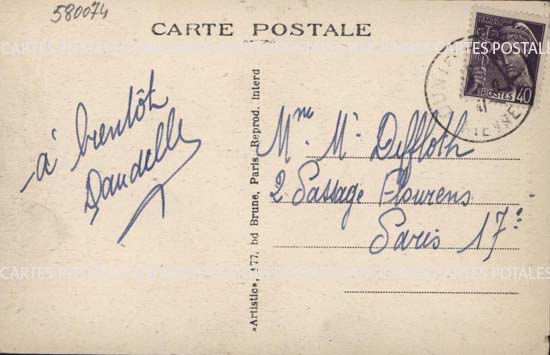 580074
CARTE POSTALE
POSTES 40
à bientôt
Dandelle
Mme Mr Deffloth
2 Passage Flourens
Paris 17e
«Artistic», 177, bd Brune, Paris - Reprod. Interd
CARTES POSTALES